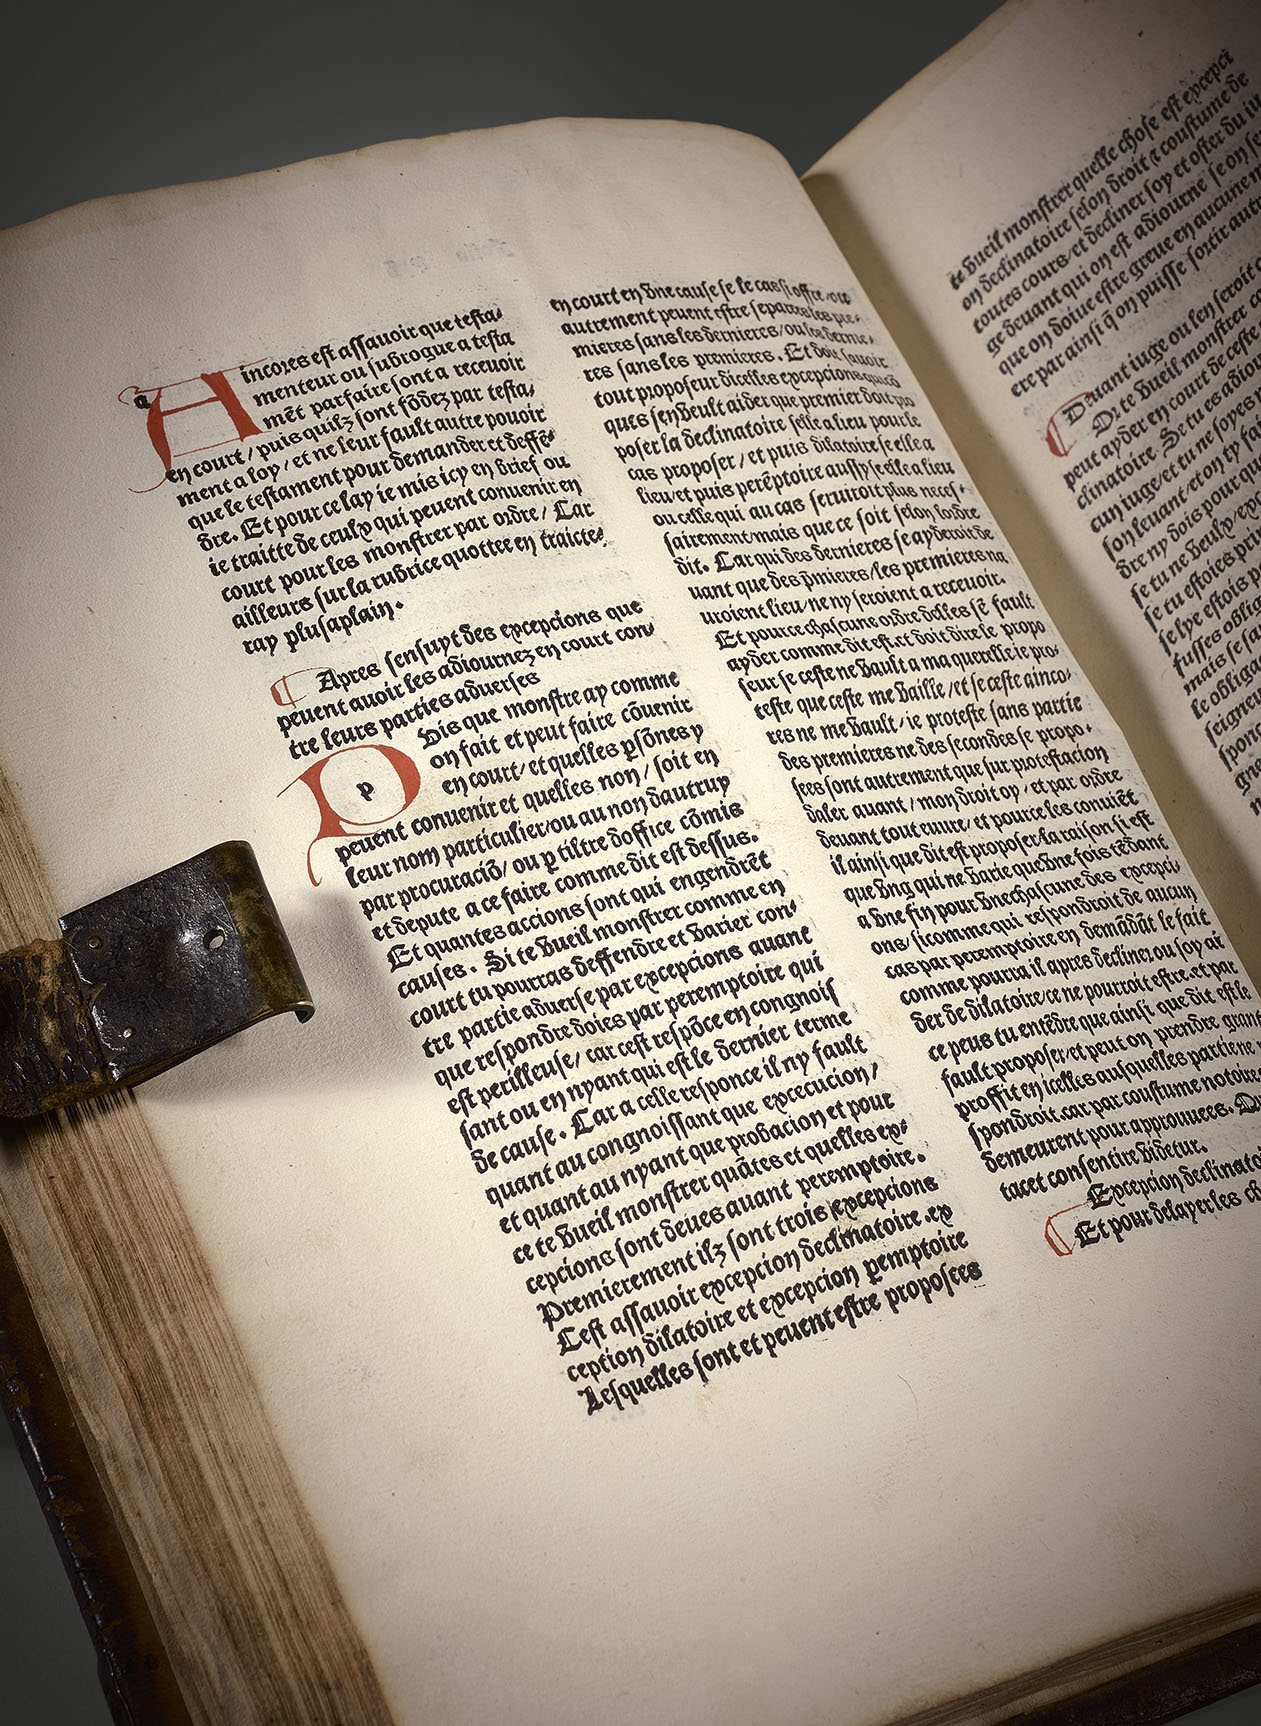 a
Aincores est assauoir que testa/
menteur ou subrogue a testa
mēt parfaire sont a receuoir
en court / puis quilz sont fōdez par testa/
ment a loy / et ne leur fault autre pouoir
que le testament pour demander et deffē/
dre. Et pour ce lay ie mis icy en brief ou
ie traitte de ceulx qui peuent conuenir en
court pour les monstrer par ordre / Car
ailleurs sur la rubrice quottee en traicte/
ray plus aplain.
Apres sensuyt des excepcions que
peuent auoir les adiournez en court con/
tre leurs parties aduerses
p
Puis que monstre ay comme
on fait et peut faire cōuenir
en court / et quelles p̲sōnes y
peuent conuenir et quelles non / soit en
leur nom particulier/ou au nom dautruy
par procuraciō / ou p̲ tiltre doffice cōmis
et depute a ce faire comme dit est dessus.
Et quantes accions sont qui engendrēt
causes. Si te vueil monstrer comme en
court tu pourras deffendre et varier con/
tre partie aduerse par excepcions auant
que respondre doies par peremptoire qui
est perilleuse / car cest respōce en congnois
sant ou en nyant qui est le dernier terme
de cause. Car a celle responce il ny fault
quant au congnoissant que execucion /
et quant au nyant que probacion et pour
ce te vueil monstrer quātes et quelles ex/
cepcions sont deues auant peremptoire.
Premierement ilz sont trois excepcions
Cest assauoir excepcion declinatoire. ex
cepcion dilatoire et excepcion p̲emptoire
Lesquelles sont et peuent estre proposees
en court en vne cause se le cas si offre / ou
autrement peuent estre separees les pre/
mieres sans les dernieres / ou les dernie/
res sans les premieres. Et doit sauoir
tout proposeur dicelles excepcions
ques sen veult aider que premier doit pro
poser la declinatoire selle a lieu pour le
cas proposer / et puis dilatoire se elle a
lieu et puis perēptoire aussy se elle a lieu
ou celle qui au cas seruiroit plus neces/
sairement mais que ce soit selon lordre
dit. Car qui des dernieres se ayderoit de
uant que des p̄mieres / les premieres na
uroient lieu ne ny seroient a receuoir.
Et pource chascune ordre delles sē fault
ayder comme dit est. et doit dire le propo
seur se ceste ne vault a ma querelle ie pro/
teste que ceste me vaille / et se ceste ainco/
res ne me vault / ie proteste sans partie
des premieres ne des secondes se propo/
sees sont autrement que sur protestacion
daler auant / mon droit oy / et par ordre
deuant tout euure / et pource les conuiēt
il ainsi que dit est proposer la raison si est
que vng qui ne varie que vne fois tēdant
a vne fin pour vne chascune des excepci/
ons / si comme qui respondroit de aucun
cas par peremptoire en demādāt le fait
comme pourra il apres decliner / ou soy ai
der de dilatoire / ce ne pourroit estre. et par
ce peus tu entēdre que ainsi que dit est le
fault proposer / et peut on prendre grant
proffit en icelles ausquelles partie ne
spondroit. car par coustume notoire
demeurent pour approuuees.
tacet consentire videtur.
Excepcion declinatoi
Et pour delayer les
te vueil monstrer quelle chose est excepci
on declinatoire selon droit & coustume de
toutes cours / et decliner soy et oster du iu
ge deuant qui on est adiourne se on se
que on doiue estre greue en aucune m
ere par ainsi q̄ on puisse sortir autre
Deuant iuge ou len seroit
Or te vueil monstrer
peut ayder en court de ceste
clinatoire Se tu es adiour
cun iuge / et tu ne soyes
son leuant / et on ty fai
dre ny dois pour que
se tu ne veulx / exc
se tu estoies prin
se lye estois p
fusses oblig
mais se la
le obligac
seigneu
spond
gne